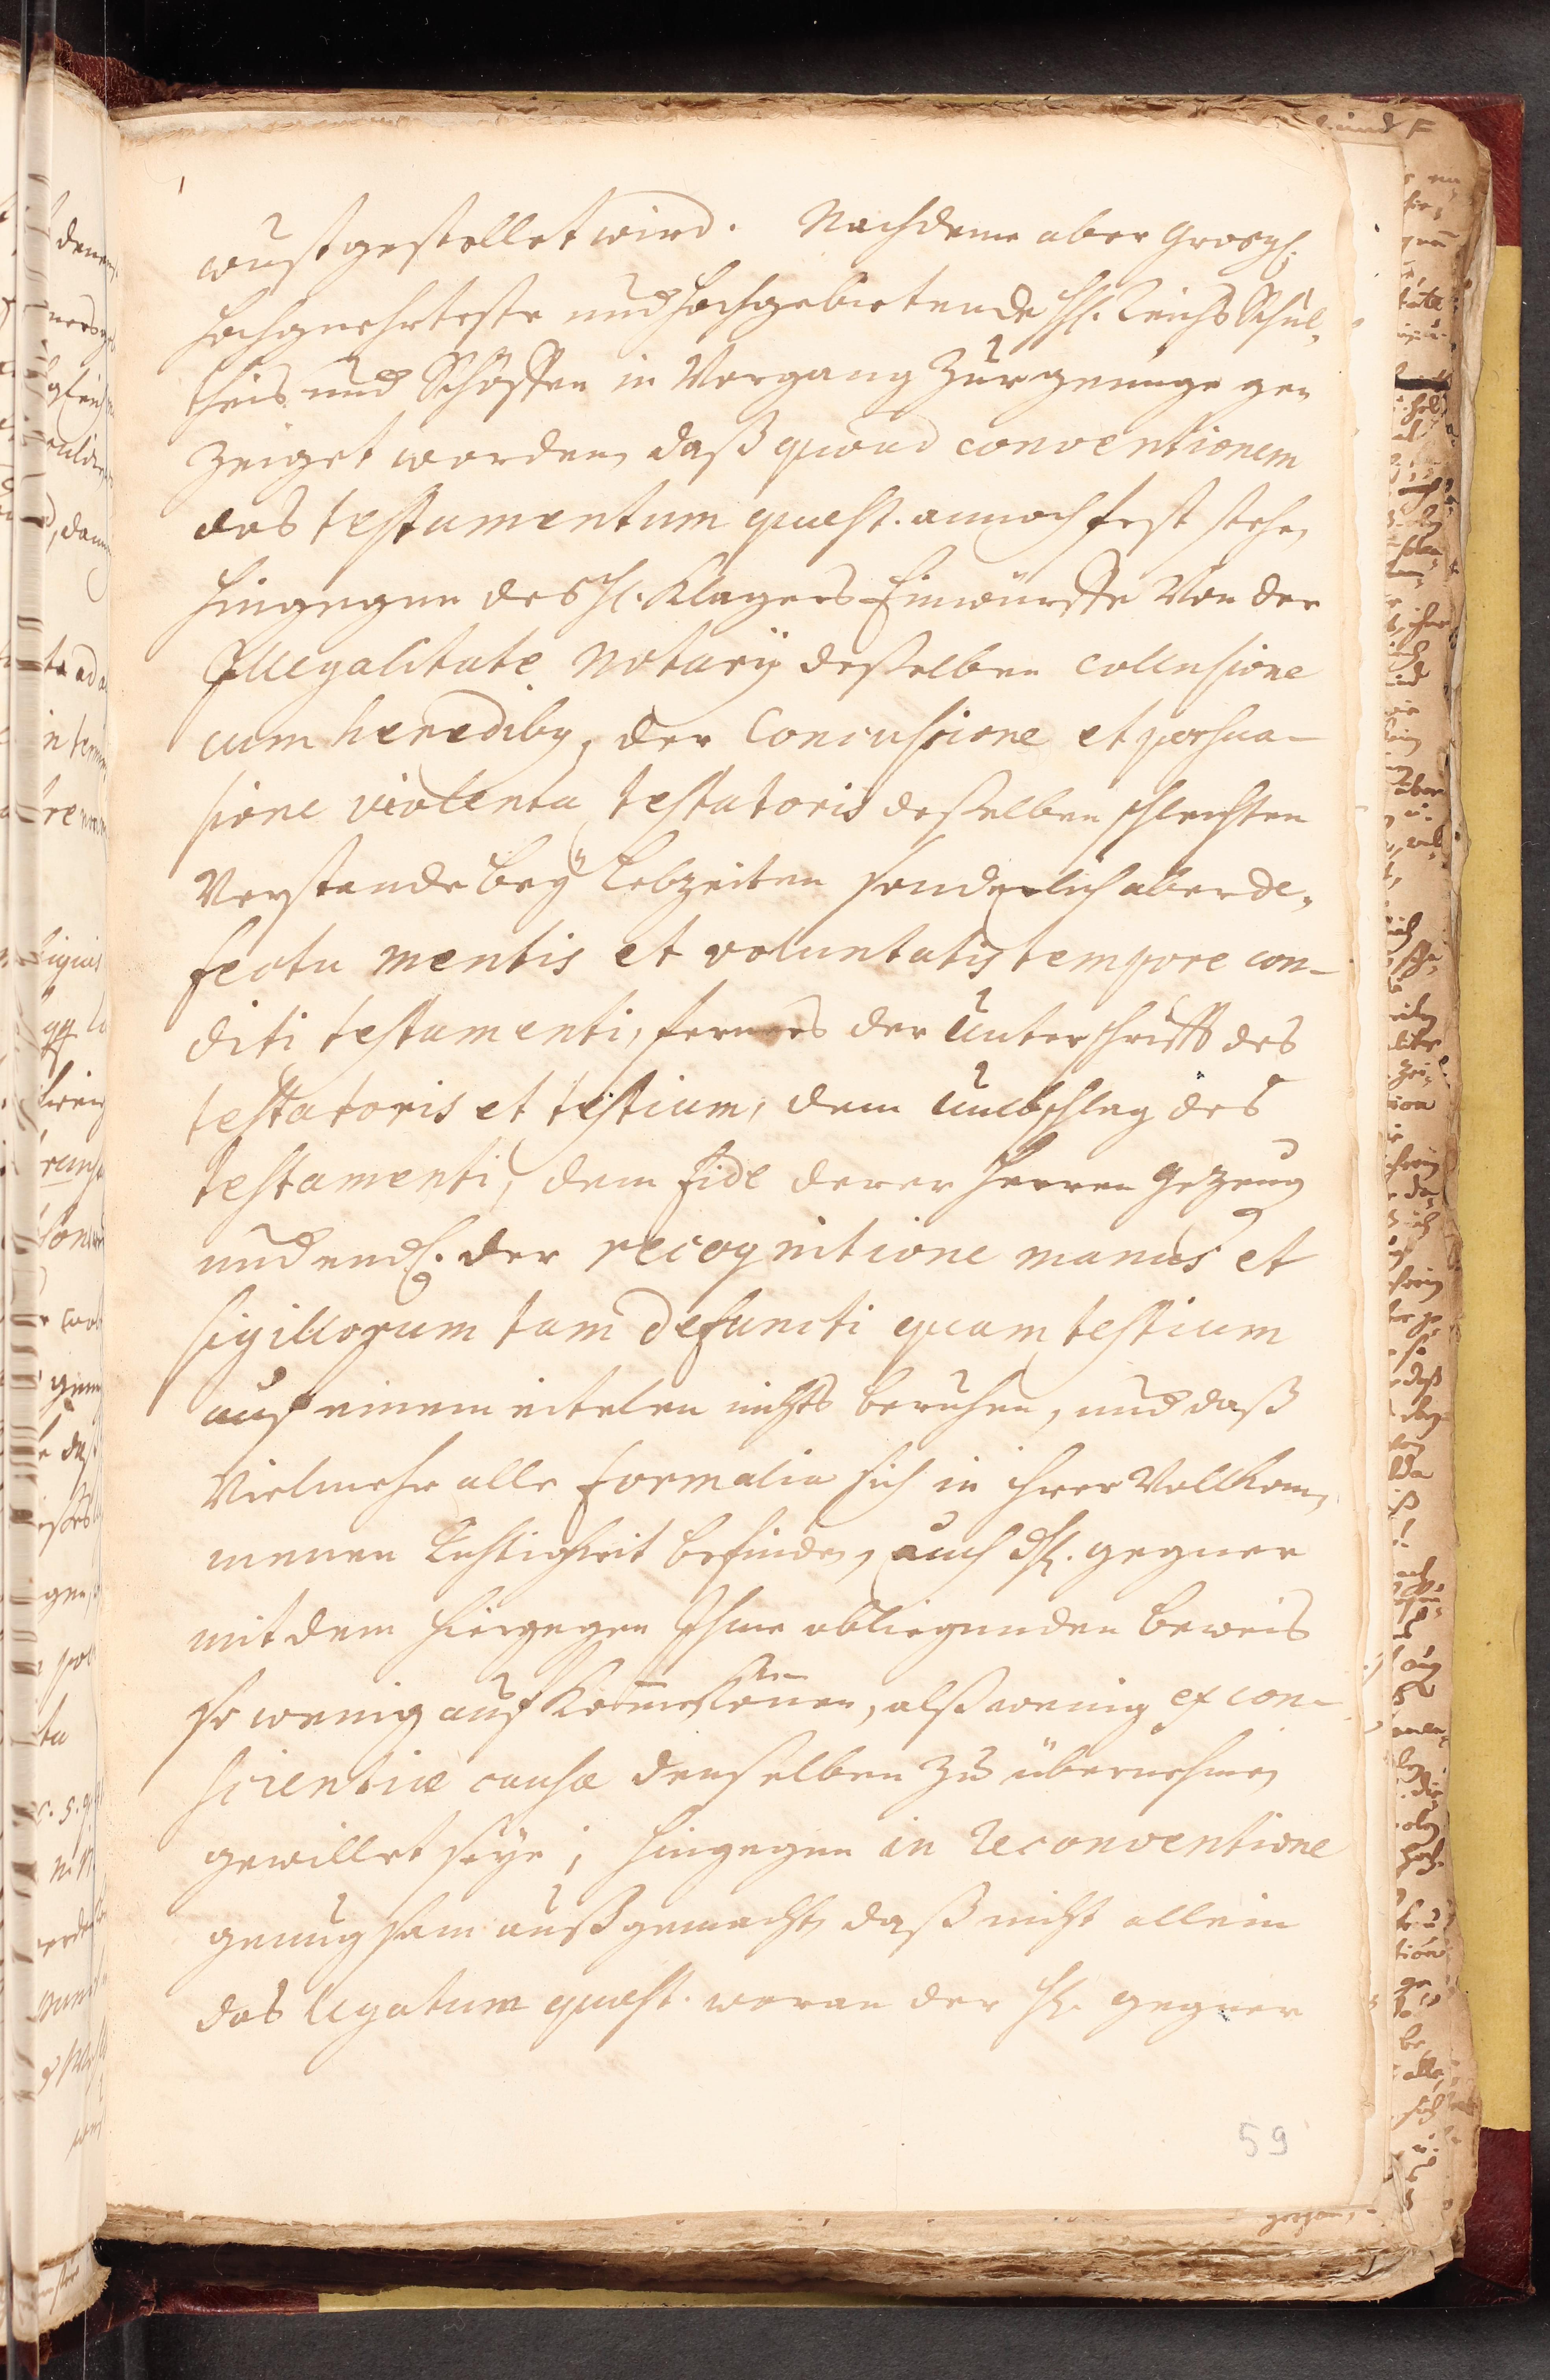 wust gestellet wird. Nachdeme aber Grosgl.
Hochgeehrteste und Hochgebietende HH. Reichs Schul-
theis und Schöffen in Vorgang zur genüge ge-
zeiget worden, daß quoad conventionem
das testamentum quæst. annoch fest stehe,
hingegen des H. Klägers Einwürffe Von der
Illegalitate Notarij deßelben collusione
cum heredibus, der Concussione et persua-
sione violenta testatoris deßelben schlechten
Verstande bey Lebzeiten sonderlich aber de-
fectu mentis et voluntatis tempore con-
diti testamenti, ferners der Unterschrifft des
testatoris et testium, dem Umbschlag des
testamenti, dem fide derer Herren Gezeug
und endl. der recognitione manus et
sigillorum tam defuncti quam testium
auf einem eitelen nichts beruhen, und daß
Vielmehr alle formalia sich in ihrer Vollkom-
menen Richtigkeit befinden, auch H. gegner
mit dem hiergegen Ihme obliegenden Beweis
so wenig aufkommen können, alß wenig ex con-
scientiæ causa denselben zu übernehmen
gewillet seye; hingegen in Reconventione
genugsam außgemacht, daß nicht allein
das legatum quæst. woran der H. gegner
59